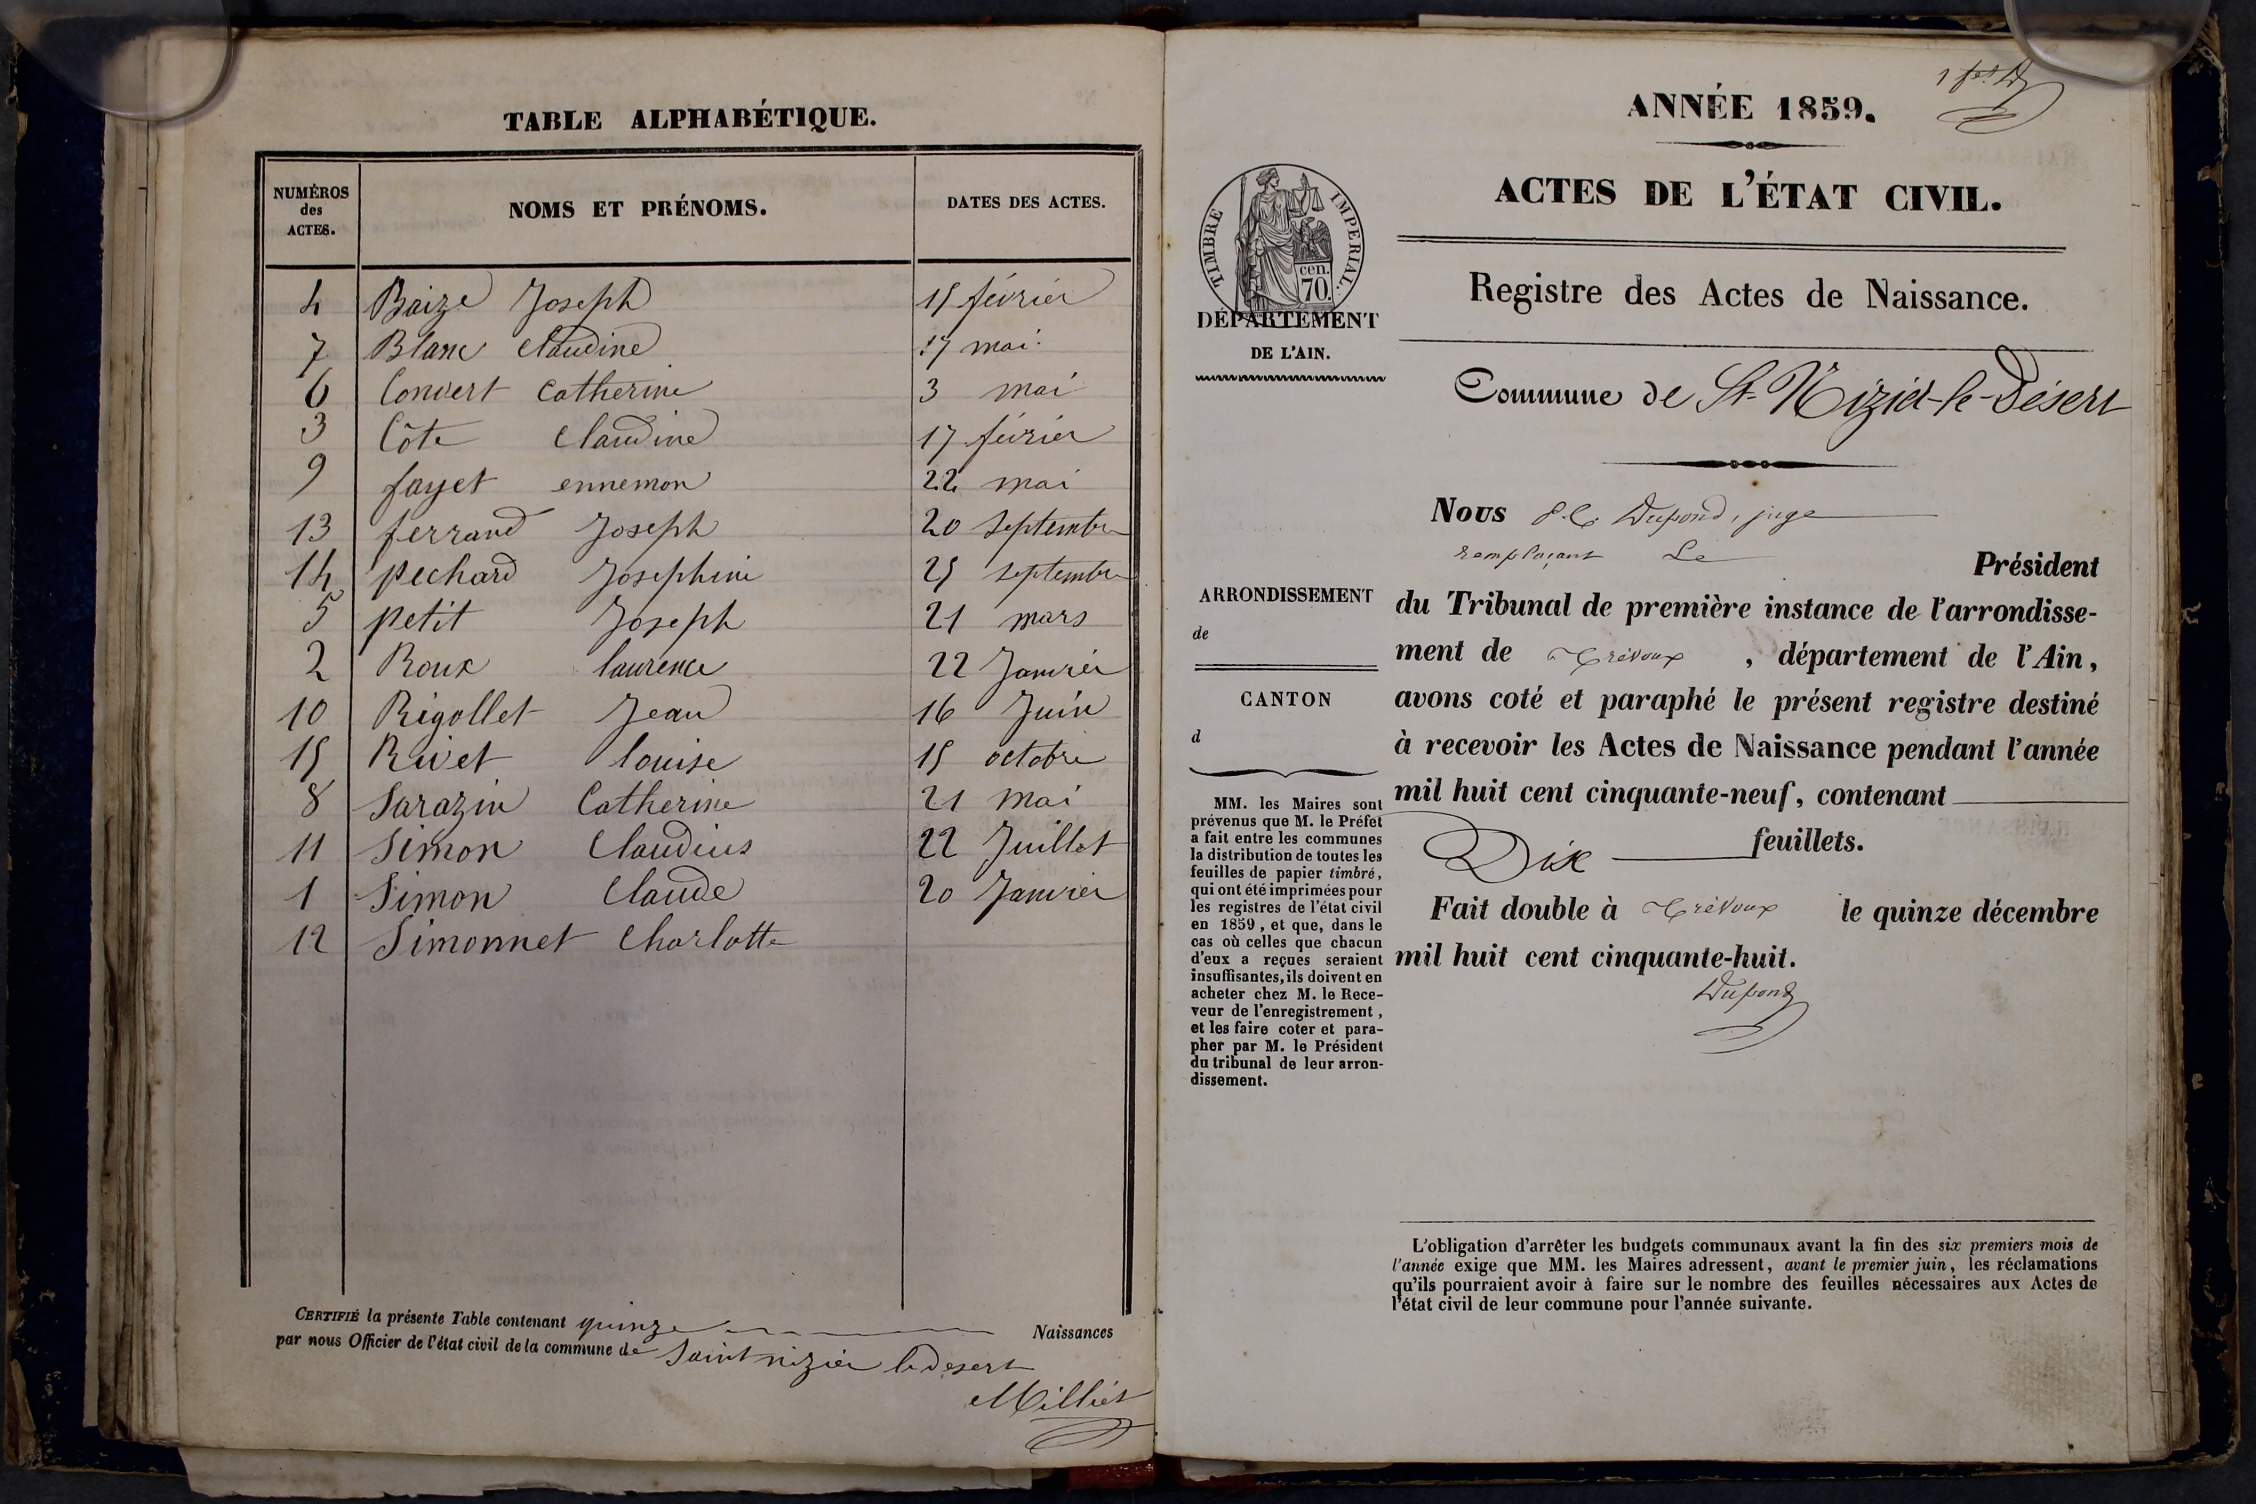 TABLE ALPHABÉTIQUE.
NUMÉROS des ACTES. NOMS ET PRÉNOMS. DATES DES ACTES.
4 Baize Joseph 15 février
7 Blanc Claudine 17 mai
6 Convert Catherine 3 mai
3 Côte Claudine 17 février
9 fayet ennemon 22 mai
13 ferrand Joseph 20 septembre
14 pechard Josephine 25 septembre
5 petit Joseph 21 mars
2 Roux laurence 22 Janvier
10 Rigollet Jean 16 Juin
15 Rivet louise 15 octobre
8 Sarazin Catherine 21 mai
11 Simon Claudius 22 Juillet
1 Simon Claude 20 Janvier
12 Simonnet Charlotte
CERTIFIÉ la présente Table contenant quinze Naissances
par nous Officier de l'état civil de la commune de Saint nizier le desert
Milliet
ANNÉE 1859.
ACTES DE L'ÉTAT CIVIL.
TIMBRE IMPERIAL.
cen.
70.
DÉPARTEMENT
DE L'AIN.
Registre des Actes de Naissance.
Commune de St-Nizier-le-Désert
Nous Dupond, juge
remplaçant Le
Président
du Tribunal de première instance de l'arrondisse-
ment de Trévoux, département de l'Ain,
avons coté et paraphé le présent registre destiné
à recevoir les Actes de Naissance pendant l'année
mil huit cent cinquante-neuf, contenant
Dix feuillets.
Fait double à Trévoux le quinze décembre
mil huit cent cinquante-huit.
Dupond
ARRONDISSEMENT
de
CANTON
d
MM. les Maires sont
prévenus que M. le Préfet
a fait entre les communes
la distribution de toutes les
feuilles de papier timbré,
qui ont été imprimées pour
les registres de l'état civil
en 1859, et que, dans le
cas où celles que chacun
d'eux a reçues seraient
insuffisantes, ils doivent en
acheter chez M. le Rece-
veur de l'enregistrement,
et les faire coter et para-
pher par M. le Président
du tribunal de leur arron-
dissement.
L'obligation d'arrêter les budgets communaux avant la fin des six premiers mois de
l'année exige que MM. les Maires adressent, avant le premier juin, les réclamations
qu'ils pourraient avoir à faire sur le nombre des feuilles nécessaires aux Actes de
l'état civil de leur commune pour l'année suivante.